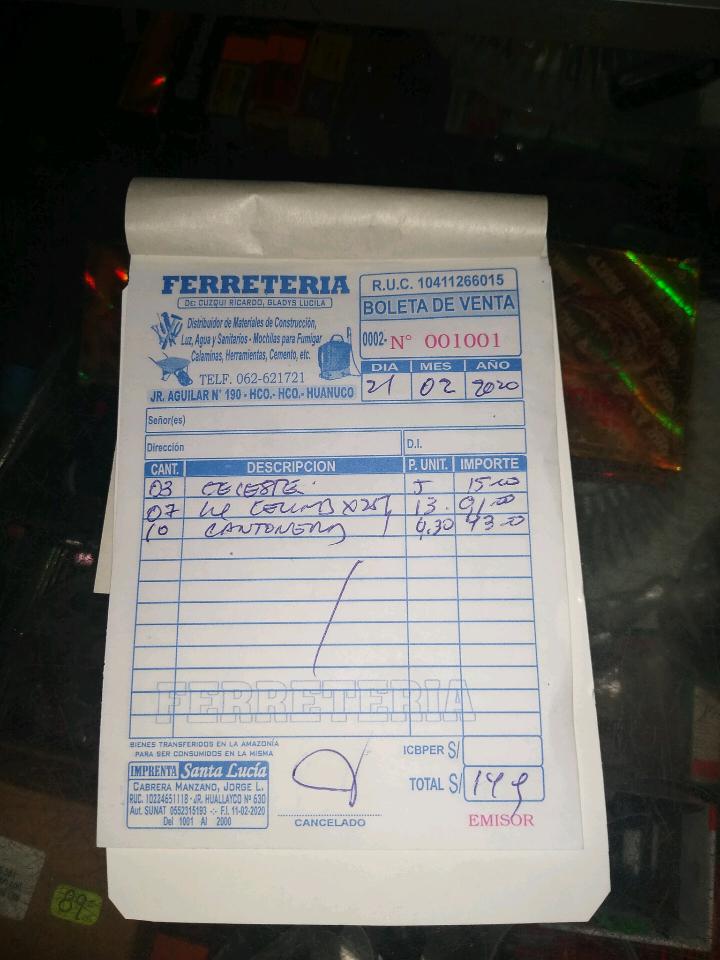 FERRETERIA
De: CUZQUI RICARDO, GLADYS LUCILA
Distribuidor de Materiales de Construcción,
Luz, Agua y Sanitarios - Mochilas para Fumigar
Calaminas, Herramientas, Cemento, etc.
TELF. 062-621721
JR. AGUILAR N° 190 - HCO.- HCO.- HUANUCO
R.U.C. 10411266015
BOLETA DE VENTA
0002- N° 001001
DIA MES AÑO
21 02 2020
Señor(es)
Dirección D.I.
CANT. DESCRIPCION P. UNIT. IMPORTE
03 CELESTE 5 15.00
07 13. 91.00
10 CANTONERA 4.30 43.00
FERRETERIA
BIENES TRANSFERIDOS EN LA AMAZONÍA
PARA SER CONSUMIDOS EN LA MISMA
ICBPER S/
TOTAL S/ 149
IMPRENTA Santa Lucía
CABRERA MANZANO, JORGE L.
RUC. 10224651118 - JR. HUALLAYCO Nº 630
Aut. SUNAT 0552315193 -:- F.I. 11-02-2020
Del 1001 Al 2000
CANCELADO
EMISOR
89